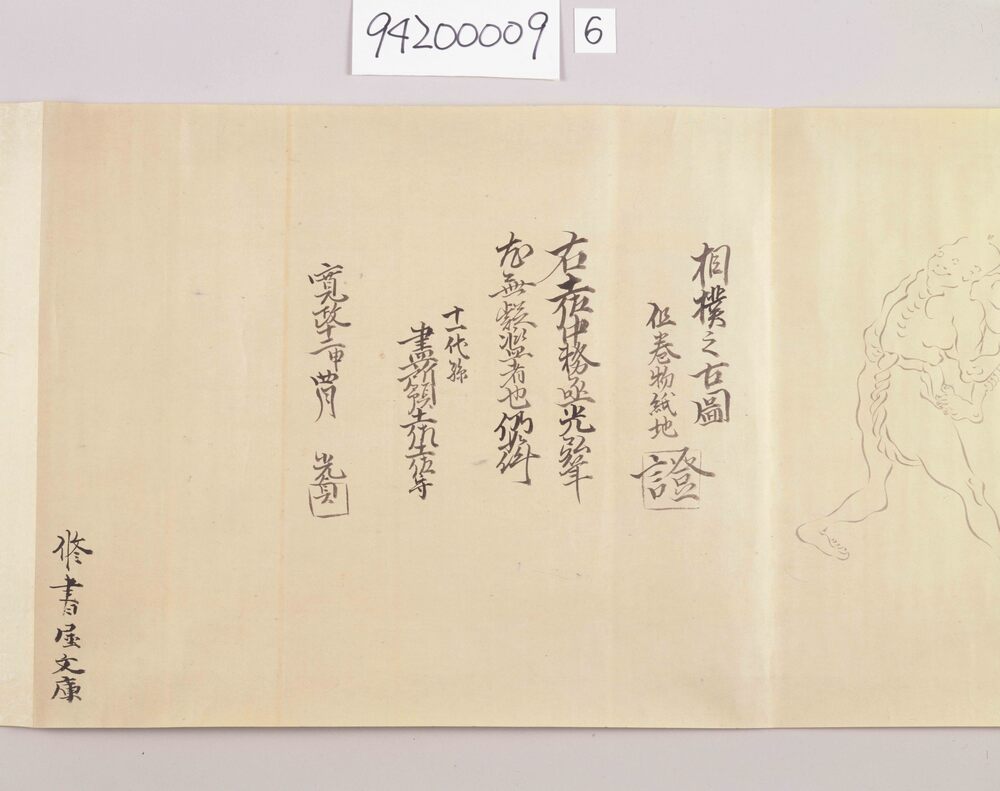 94200009
6
相撲之古圖
但巻物紙地
證
右土佐中務丞光弘筆
尤無疑濫者也仍而件
十一代孫
畫所領土佐土佐守
寛政十二年
光貞
修書屋文庫